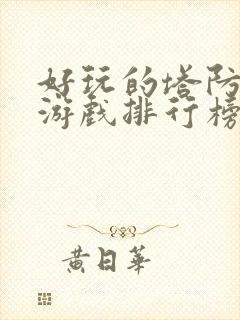 好玩的塔防
游戏排行榜
黄日华